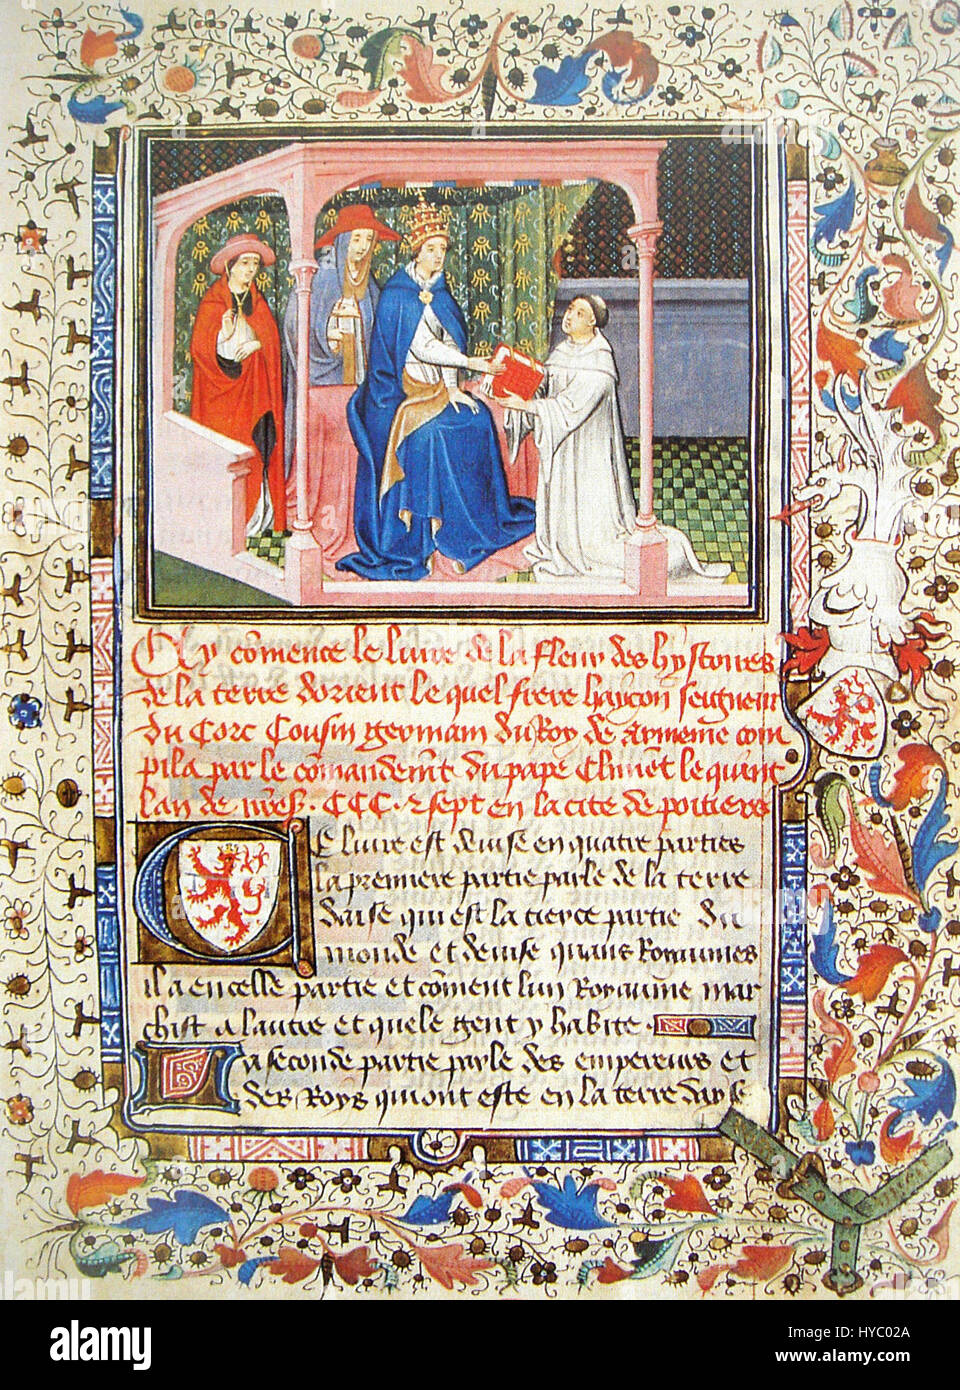 Cy cõmence le livre de la fleur des hystoires
de la terre dorient le quel frere hayton seigneur
du Corc Cousin germain du Roy de armenie com
pila par le cõmandemẽt du pape Climẽt le quint
lan de CCC. sept en la cite de poitiers
Ce livre est devise en quatre parties
la premiere partie parle de la terre
daise qui est la tierce partie du
monde et devise quans Royaumes
il a en celle partie et cõment lun Royaume mar
chist a lautre et quele gent y habite.
La seconde partie parle des empereurs et
des Roys qui ont este en la terre dayse
alamy
Image ID: HYC02A
www.alamy.com